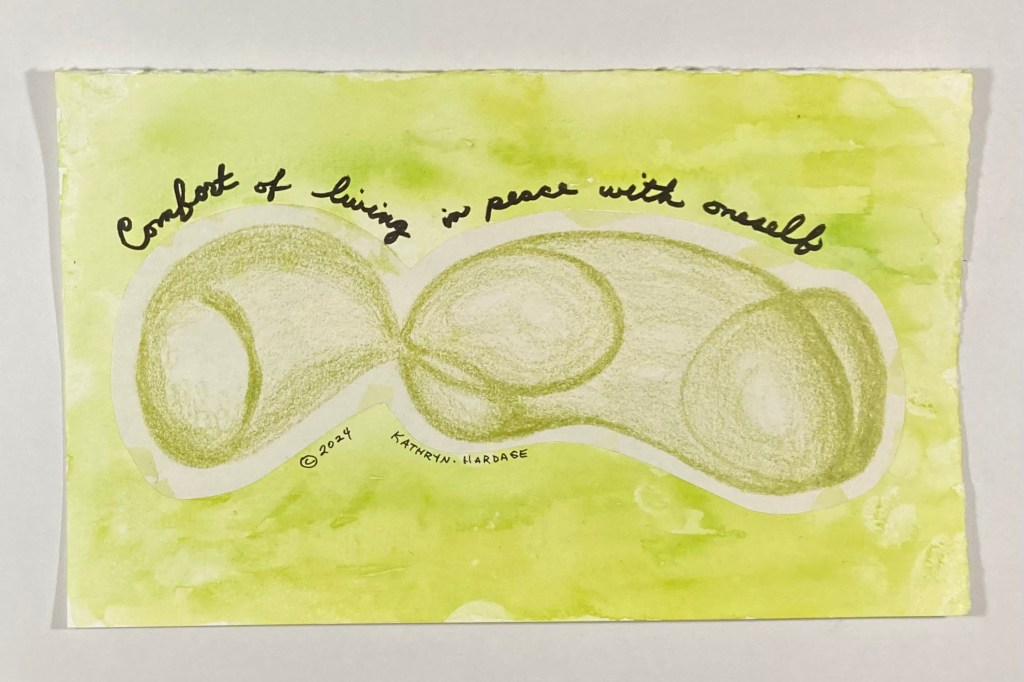 Comfort of living in peace with oneself
© 2024
KATHRYN. HARDAGE